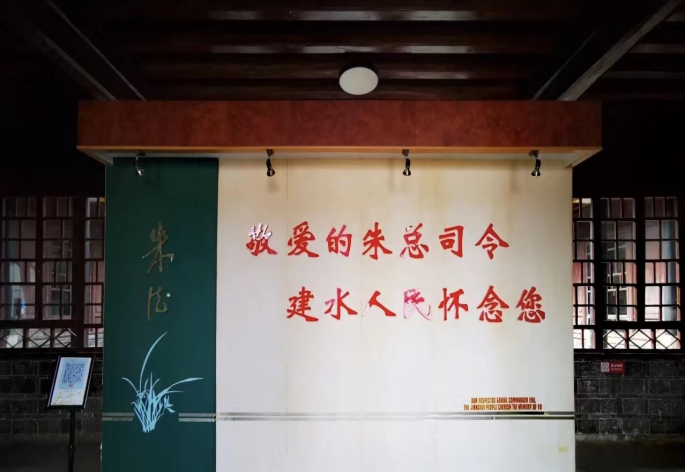 朱德
敬爱的朱总司令
建水人民怀念您
OUR RESPECTED GENERAL COMMANDER ZHU,
THE JIANSHUI PEOPLE CHERISH THE MEMORY OF YO